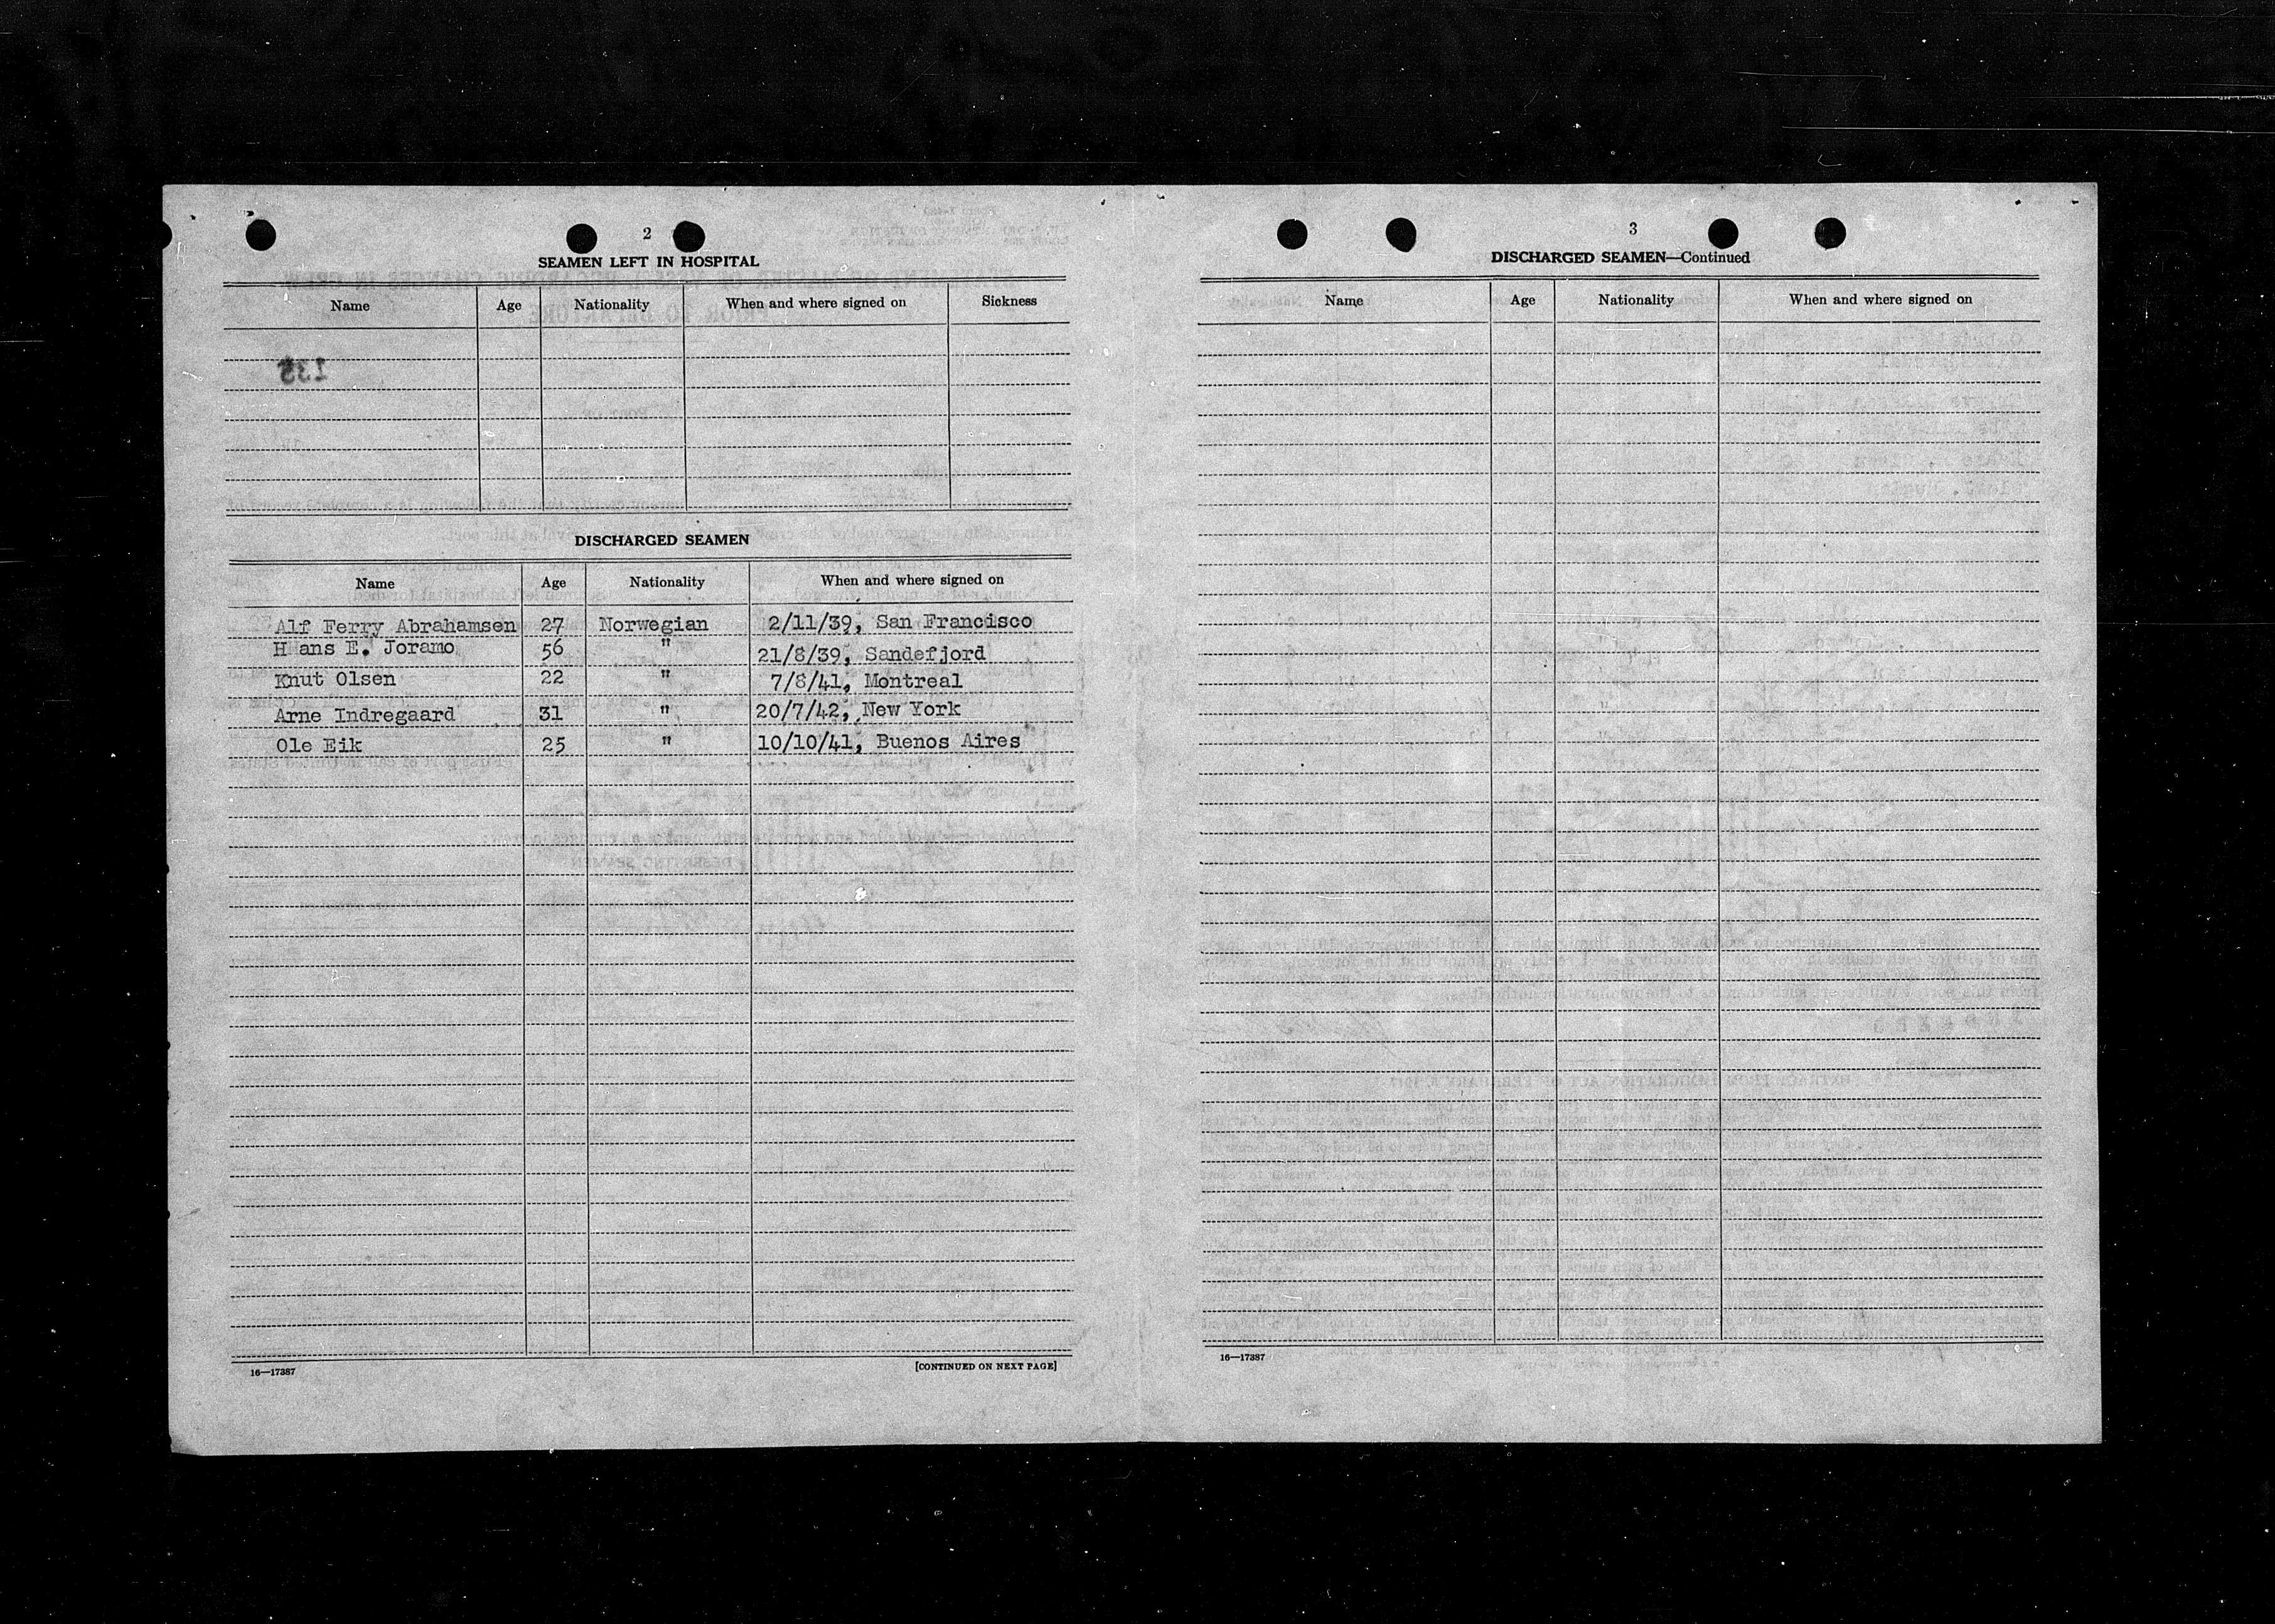 2
SEAMEN LEFT IN HOSPITAL
Name Age Nationality When and where signed on Sickness
DISCHARGED SEAMEN
Name Age Nationality When and where signed on
Alf Ferry Abrahamsen 27 Norwegian 2/11/39, San Francisco
H ans E. Joramo 56 " 21/8/39, Sandefjord
Knut Olsen 22 " 7/8/41, Montreal
Arne Indregaard 31 " 20/7/42, New York
Ole Eik 25 " 10/10/41, Buenos Aires
16—17387 [CONTINUED ON NEXT PAGE]
3
DISCHARGED SEAMEN—Continued
Name Age Nationality When and where signed on
16—17387